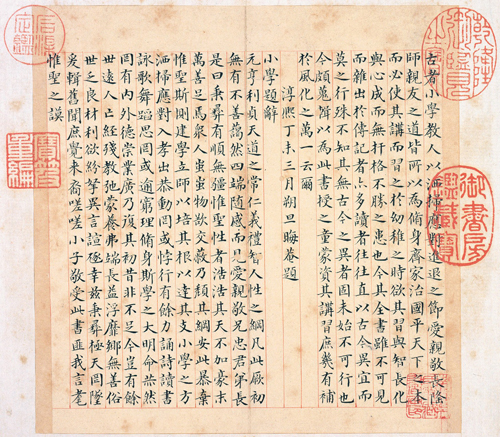 古者小學教人以洒掃應對進退之節愛親敬長隆
師親友之道皆所以為脩身齊家治國平天下之本
而必使其講而習之於幼穉之時欲其習與智長化
與心成而無扞格不勝之患也今其全書雖不可見
而雜出於傳記者亦多讀者往往直以古今異宜而
莫之行殊不知其無古今之異者固未始不可行也
今頗蒐輯以為此書授之童蒙資其講習庶幾有補
於風化之萬一云爾
淳熙丁未三月朔旦晦菴題
小學題辭
元亨利貞天道之常仁義禮智人性之綱凡此厥初
無有不善藹然四端隨感而見愛親敬兄忠君弟長
是曰秉彝有順無彊惟聖性者浩浩其天不加豪末
萬善足焉衆人蚩蚩物欲交蔽乃頹其綱安此暴棄
惟聖斯惻建學立師以培其根以達其支小學之方
洒掃應對入孝出恭動罔或悖行有餘力誦詩讀書
詠歌舞蹈思罔或逾窮理脩身斯學之大明命赫然
罔有內外德崇業廣乃復其初昔非不足今豈有餘
世遠人亡經殘教弛蒙養弗端長益浮靡鄉無善俗
世乏良材利欲紛拏異言諠豗幸茲秉彝極天罔墜
爰輯舊聞庶覺來裔嗟嗟小子敬受此書匪我言耄
惟聖之謨
乾隆御覽之寶
御書房鑑藏寶
石渠定鑑
寶笈重編